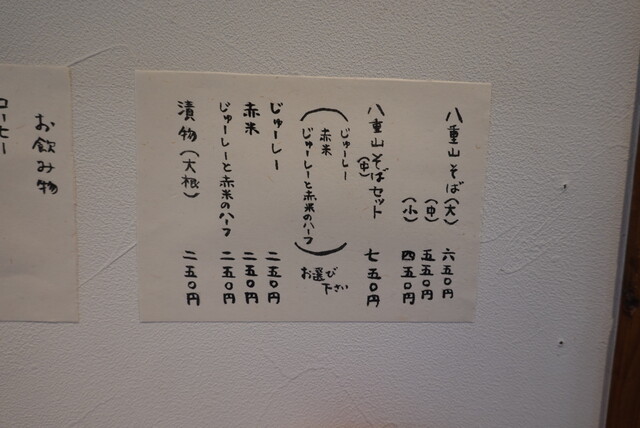 八重山そば(大) 六五〇円
(中) 五五〇円
(小) 四五〇円
八重山そばセット(中) 七五〇円
(じゅーしー
赤米
じゅーしーと赤米のハーフ)
お選び
下さい
じゅーしー 二五〇円
赤米 二五〇円
じゅーしーと赤米のハーフ 二五〇円
漬物(大根) 二五〇円
お飲み物
コーヒー